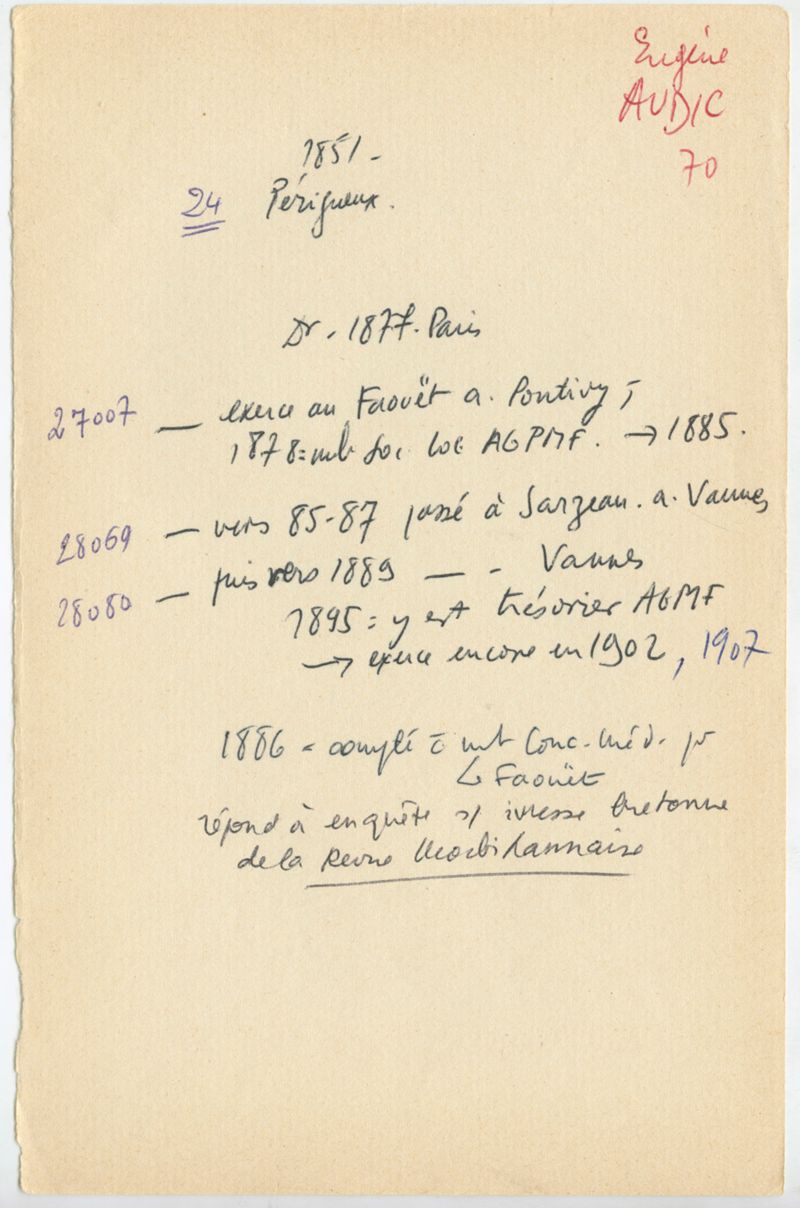 Eugène
AUDIC
70
1851 -
24 Périgueux.
Dr. 1877. Paris
27007 — exerce au Faouët a. Pontivy,
1878 = mb Soc loc AGPMF. → 1885.
28069 — vers 85-87 passé à Sarzeau. a. Vannes
28080 — puis vers 1889 — - Vannes
1895 = y est trésorier AGMF
→ exerce encore en 1902, 1907
1886 = compté mb Conc. Méd. pr
↳ Faouët
répond à enquête s/ ivresse bretonne
de la Revue Morbihannaise